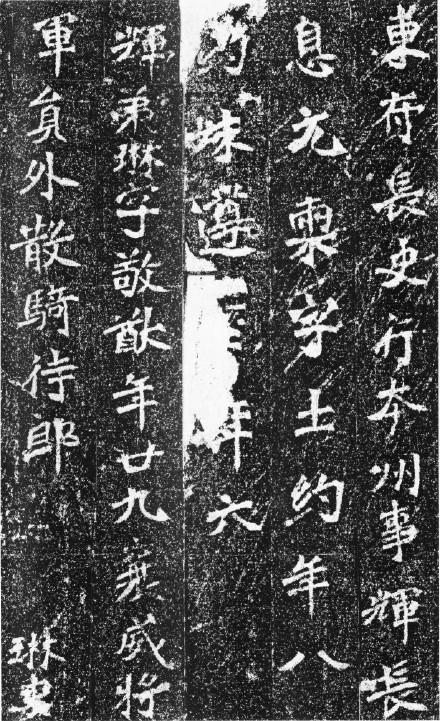 東府長史行本州事 輝長
息元稟字士約年八
妹遵年六
輝弟琳字敬猷年廿九 襄威將
軍員外散騎侍郎 琳妻